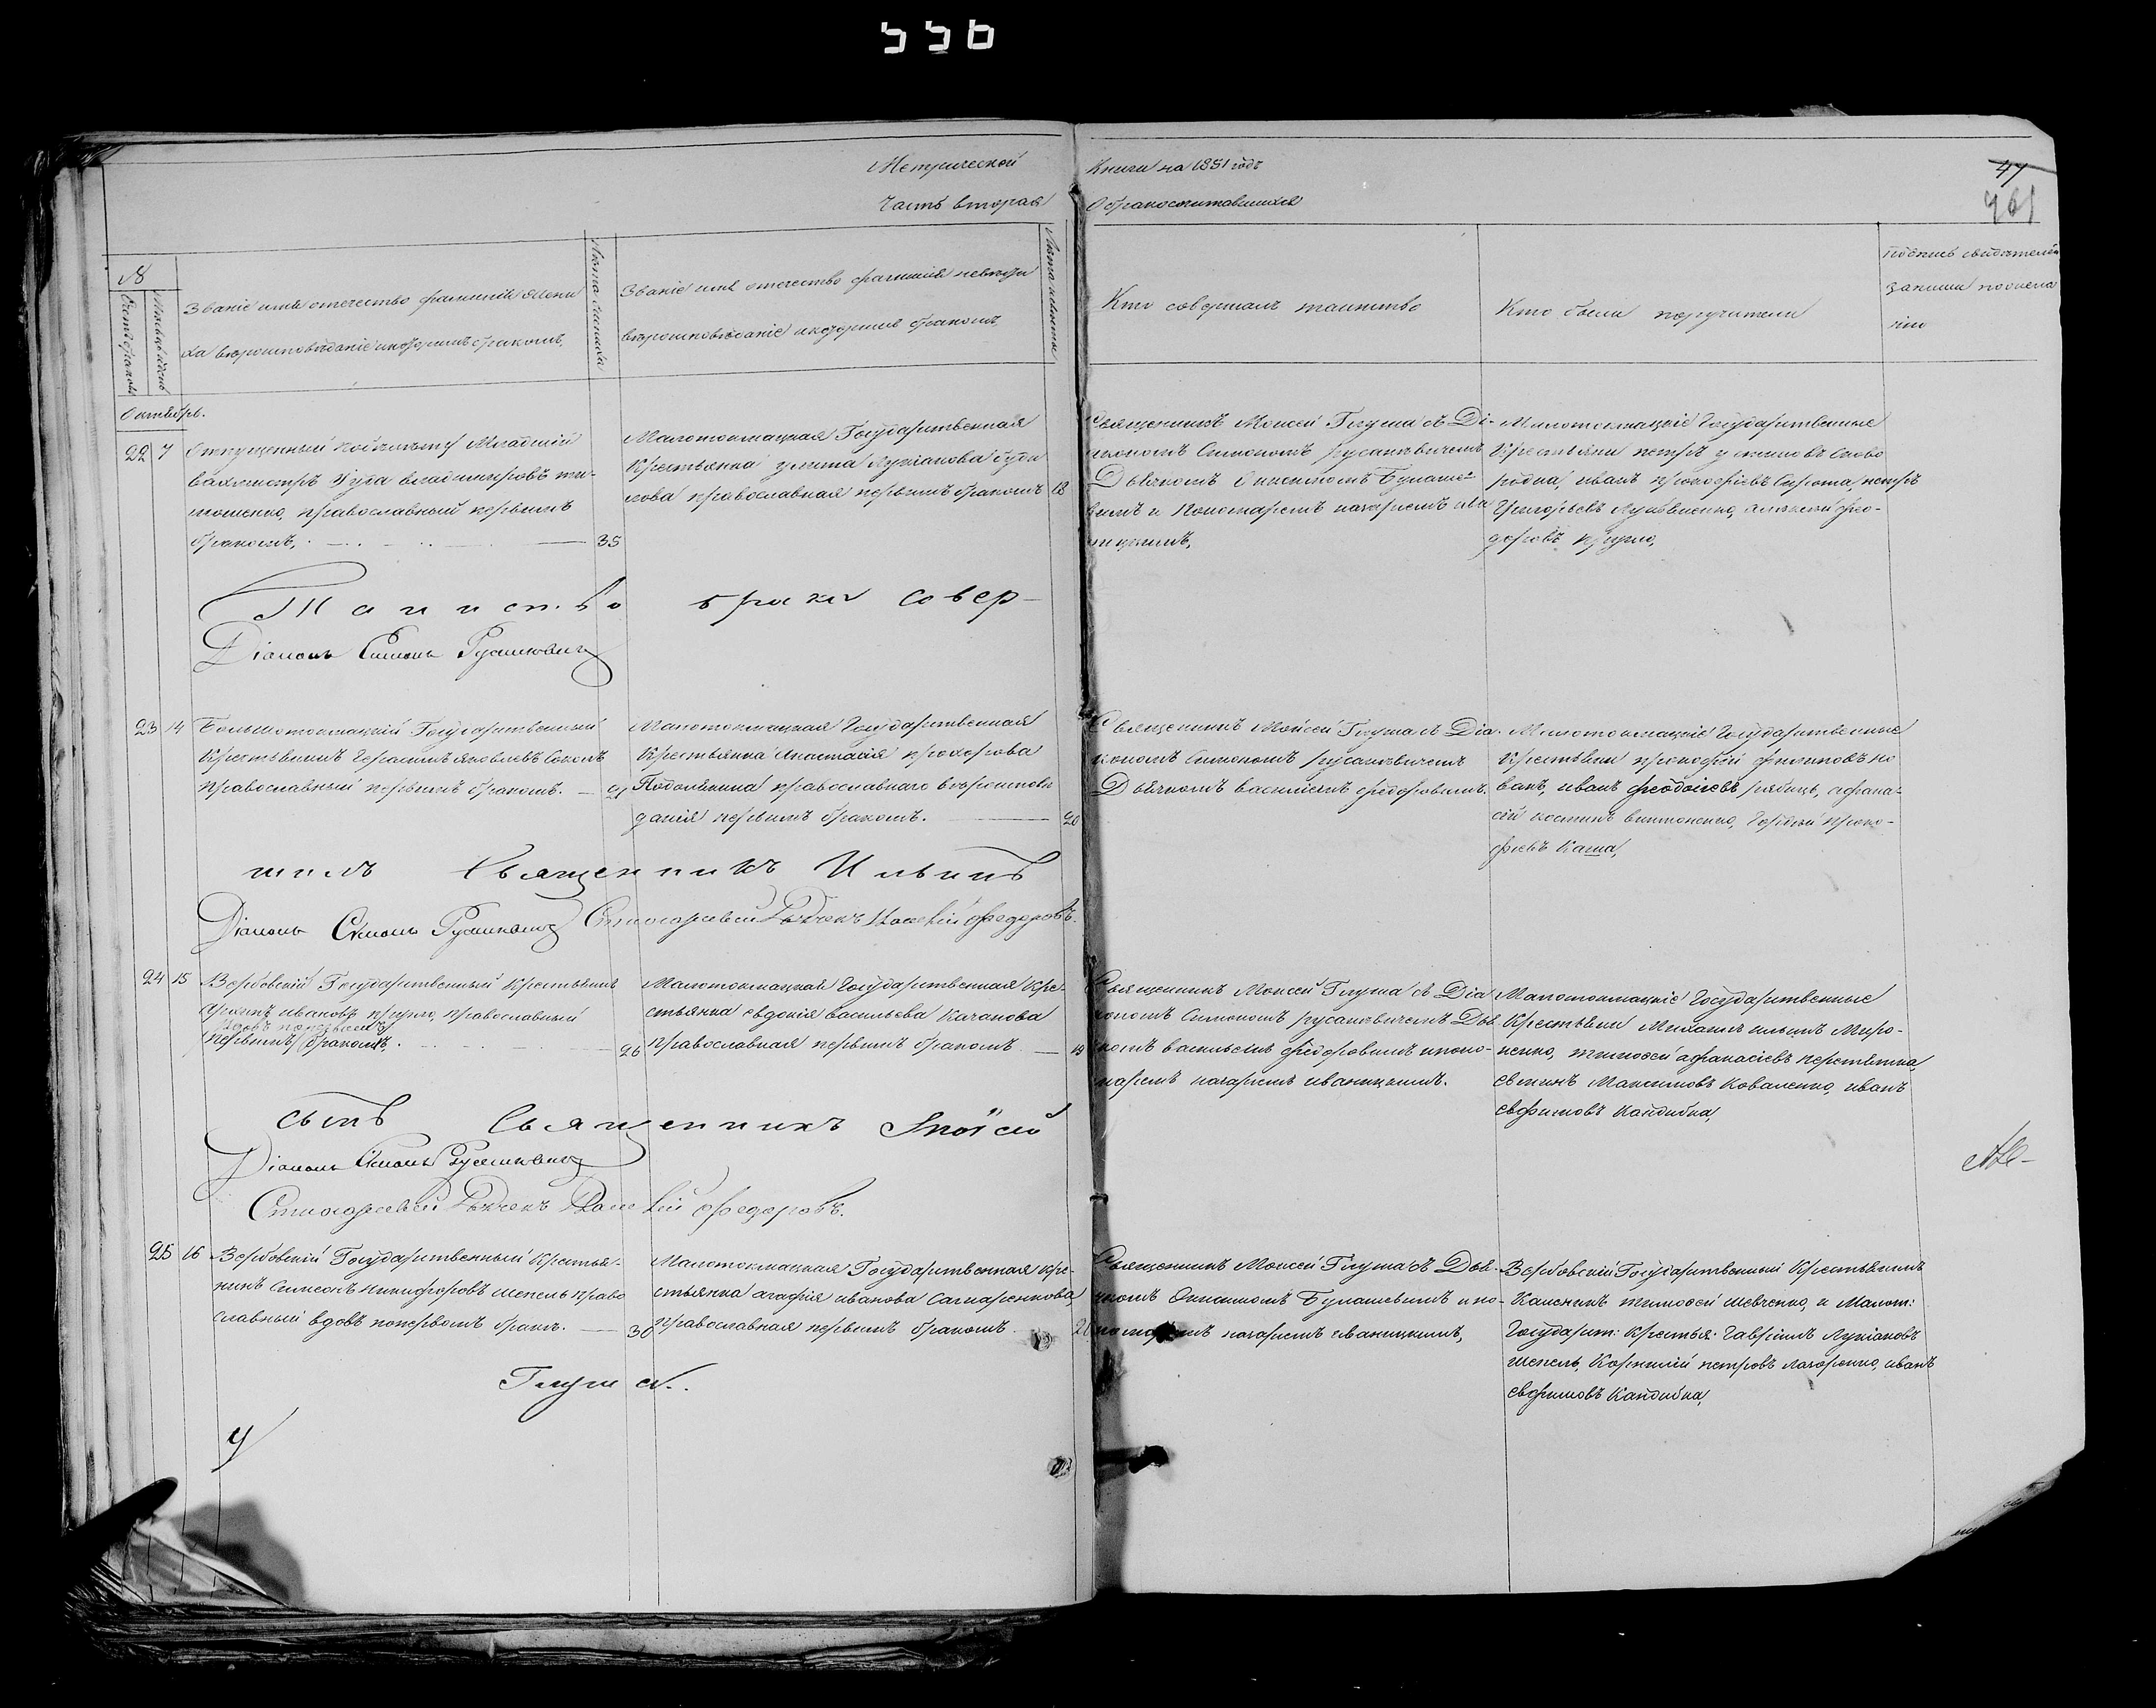 556
Метрической Книги на 1851 годъ
47
461
Часть вторая О бракосочетавшихся
№
Счетъ браковъ
Мѣсяцъ и день
Званіе имя отечество фамилія жени
ха вѣроисповѣданіе и которымъ бракомъ,
Лѣта жениха
Званіе имя отечество фамилія невѣсты
вѣроисповѣданіе и которымъ бракомъ,
Лѣта невѣсты
Кто совершалъ таинство
Кто были поручители
Подпись свидѣтелей
записи по
нію
Октябрь.
22 7 Отпущенный Младшій
вахмистръ Іуда владиміровъ ти-
мошенко, православный первымъ
бракомъ, 35
Малотокмацкая Государственная
Крестьянка улита Лукіанова
православная первымъ бракомъ 18
Священникъ Моисей Глуша съ Ді-
акономъ Симономъ русанкевичемъ
Дьячкомъ Онисимомъ
и Пономаремъ назаріемъ ива
ницкимъ,
Малотокмацкіе Государственные
Крестьяни петръ Сково
родка, иванъ прокофіевъ Сирота, петръ
Григорьевъ Лукьяненко, алексѣй фео-
доровъ кругло,
Таинство брака совер-
Діаконъ Симонъ Русанкевичъ
23 14 Большотокмацкій Государственный
Крестьянинъ Герасимъ яковлевъ Соколъ
православный первымъ бракомъ. 21
Малотокмацкая Государственная
Крестьянка Анастасія прохорова
Подолянкина православнаго вѣроисповѣ
данія первымъ бракомъ. 20
Священникъ Моисей Глуша съ Діа-
кономъ Симономъ русанкевичемъ
Дьячкомъ василіемъ федоровымъ.
Малотокмацкіе Государственные
Крестьяни прокофій филиповъ но
вакъ, иванъ феодосіевъ рябецъ, афана-
сій костинъ винтоненко, Гордѣй проко-
фіевъ Каша,
шилъ Священникъ Ильинъ
Діаконъ Симонъ Русанкевичъ Стихарный Дьячекъ Василій федоровъ.
24 15 Вербовскій Государственный Крестьянинъ
ивановъ кругло, православный
вдовъ по первомъ
первымъ бракомъ, 26
Малотокмацкая Государственная Кре-
стьянка евдокія васильева Качанова
православная первымъ бракомъ 19
Священникъ Моисей Глуша съ Діа
кономъ Симономъ русанкевичемъ Дья
чкомъ василіемъ федоровымъ и поно-
маремъ назаріемъ иваницкимъ.
Малотокмацкіе Государственные
Крестьяни Михаилъ ильинъ Миро-
ненко, тимофей афанасіевъ перетятка,
Максимовъ Коваленко, иванъ
евфимовъ Кандибка,
сынъ Священникъ Моисей
Діаконъ Симонъ Русанкевичъ
Стихарный Дьячекъ Василій федоровъ.
25 16 Вербовскій Государственный Крестья-
нинъ Симеонъ никифоровъ шепель право
славный вдовъ по первомъ бракѣ. 30
Малотокмацкая Государственная кре-
стьянка агафія иванова Сапаренкова,
православная первымъ бракомъ
Священникъ Моисей Глуша съ Дья-
чкомъ Онисимомъ и по-
номаремъ назаріемъ иваницкимъ,
Вербовскій Государственный Крестьянинъ
тимофей шевченко, и Малот:
Государст: Крестья: Гавріилъ Лукіановъ
шепель, Корнилій петровъ лазоренко, иванъ
евфимовъ Кандибка,
Глуша.